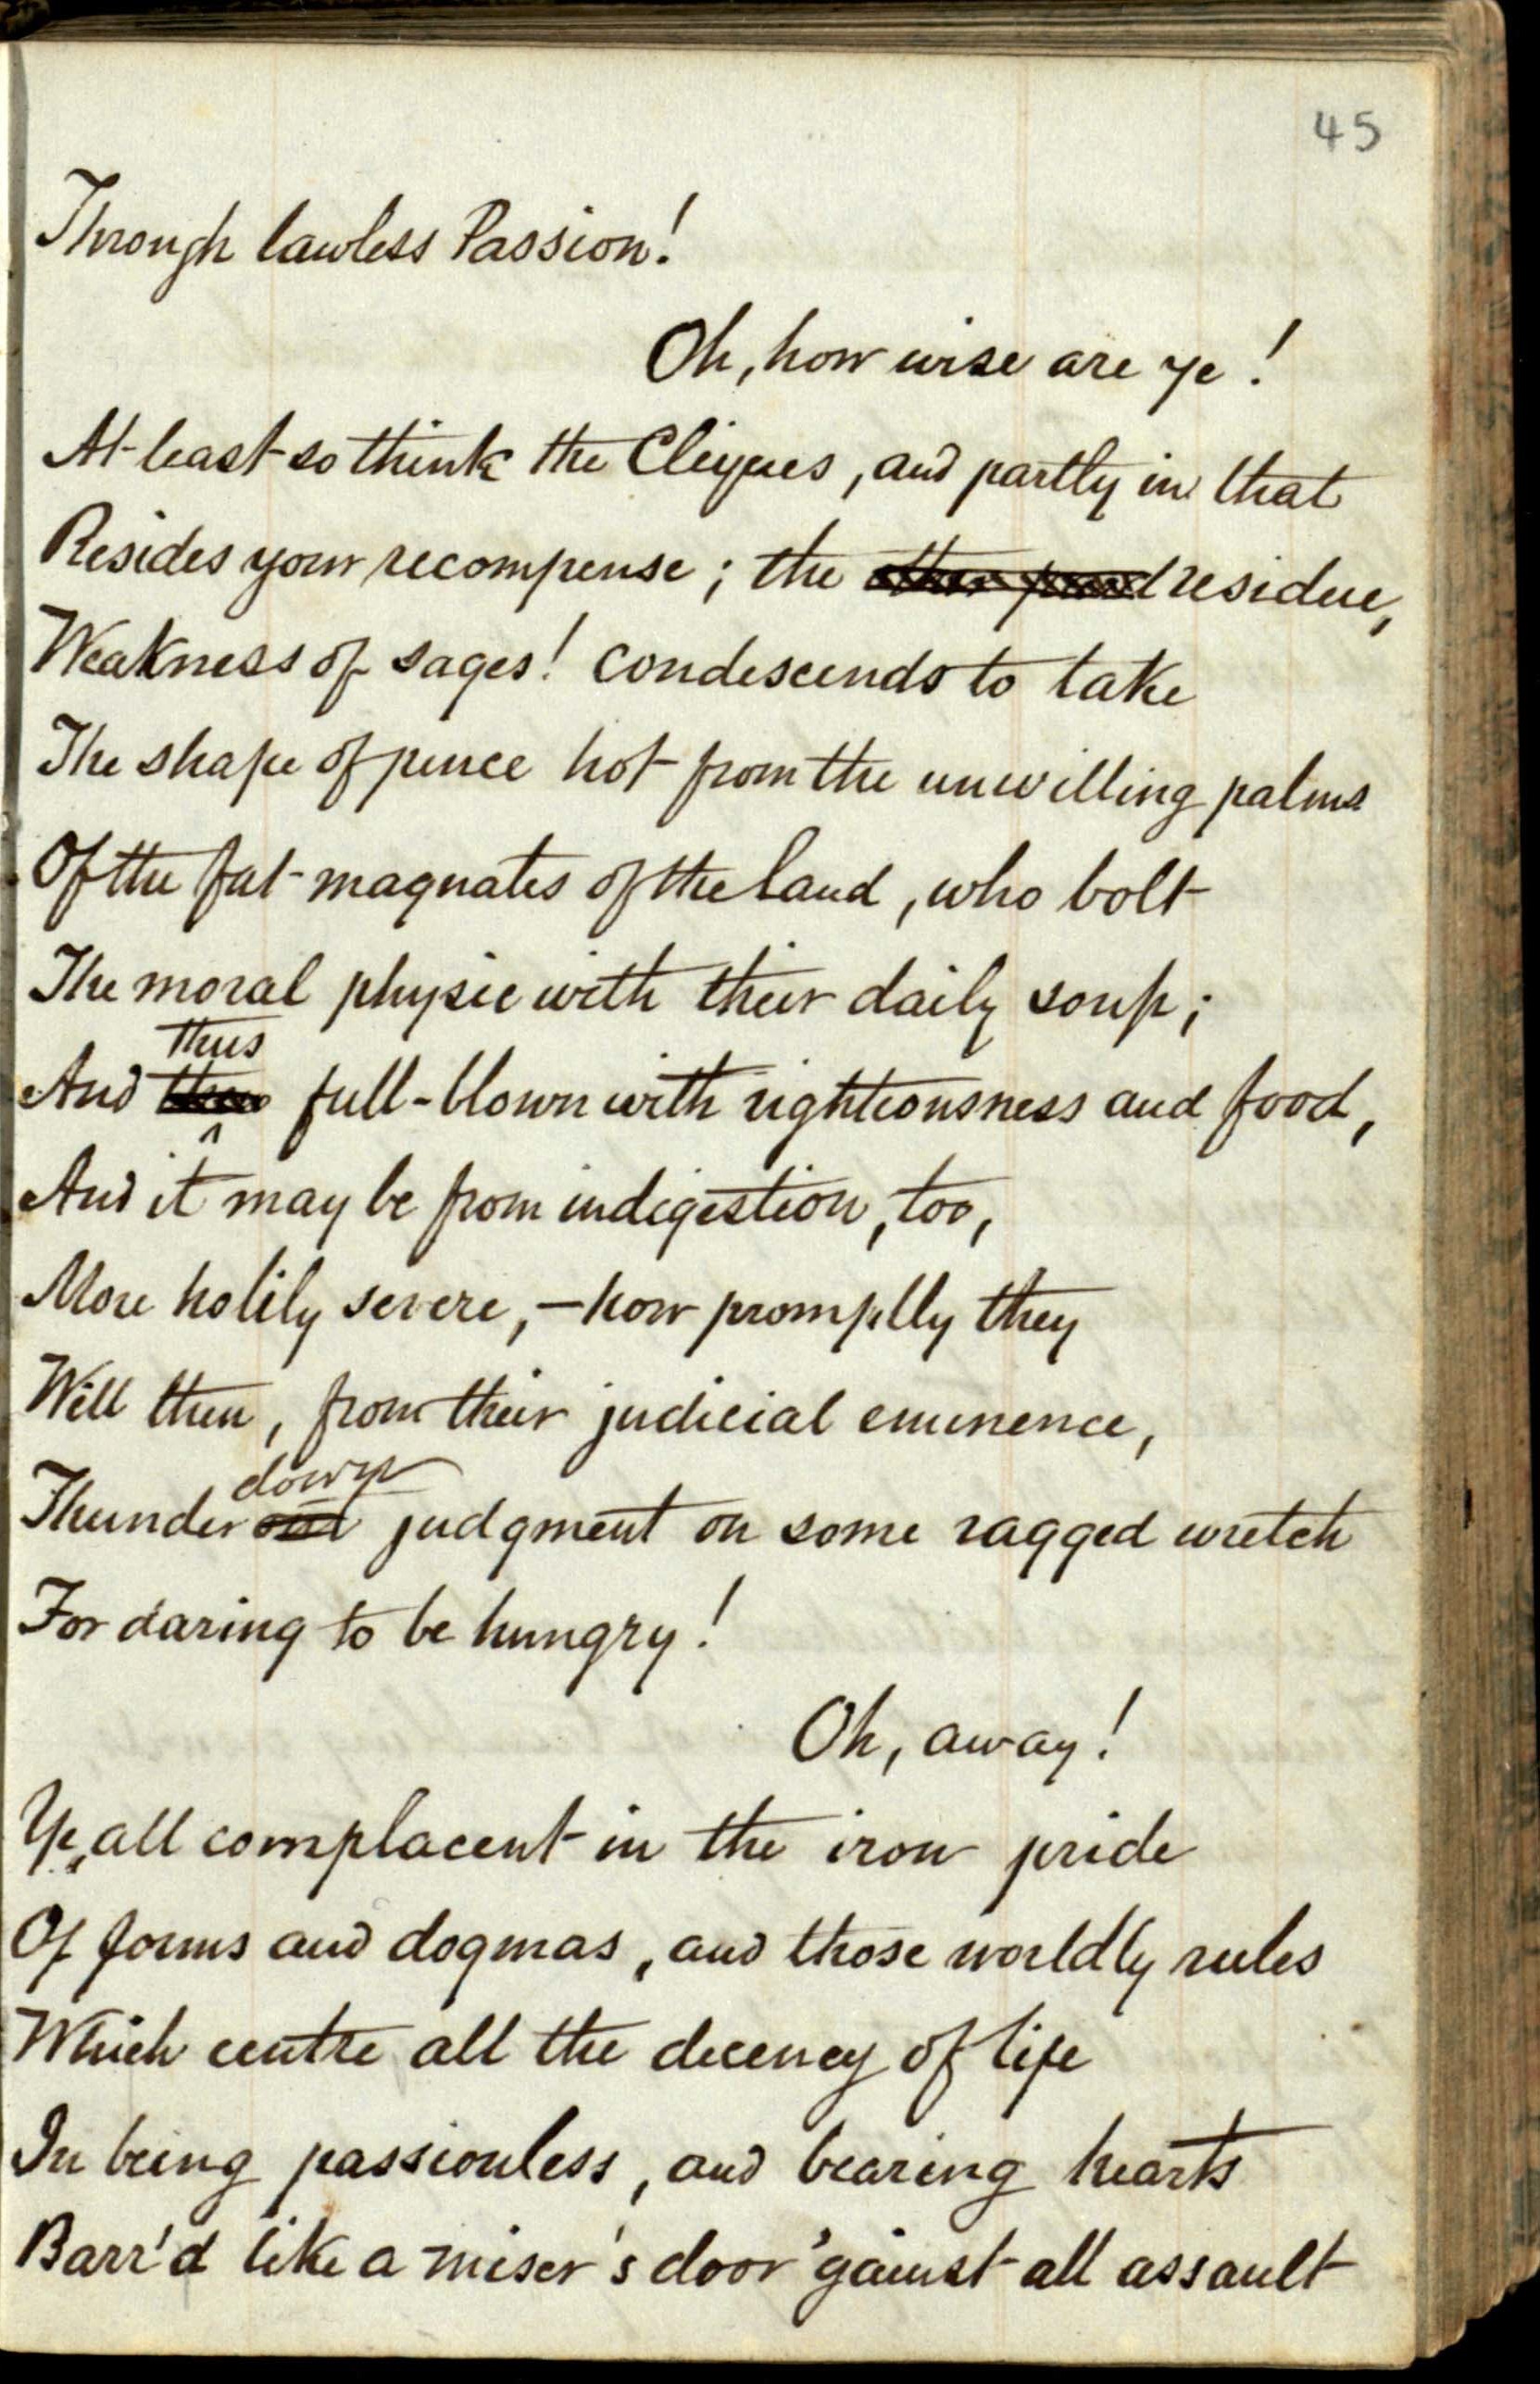 45
Through lawless Passion!
Oh, how wise are ye!
At least so think the Cliques, and partly in that
Resides your recompense; the residue,
Weakness of sages! condescends to take
The shape of pence hot from the unwilling palms
Of the fat magnates of the land, who bolt
The moral physic with their daily soup;
thus
And full-blown with righteousness and food,
And it may be from indigestion, too,
More holily severe, — how promptly they
Will then, from their judicial eminence,
down
Thunder judgment on some ragged wretch
For daring to be hungry!
Oh, away!
Ye, all complacent in the iron pride
Of forms and dogmas, and those worldly rules
Which centre all the decency of life
In being passionless, and bearing hearts
Barr'd like a miser's door 'gainst all assault